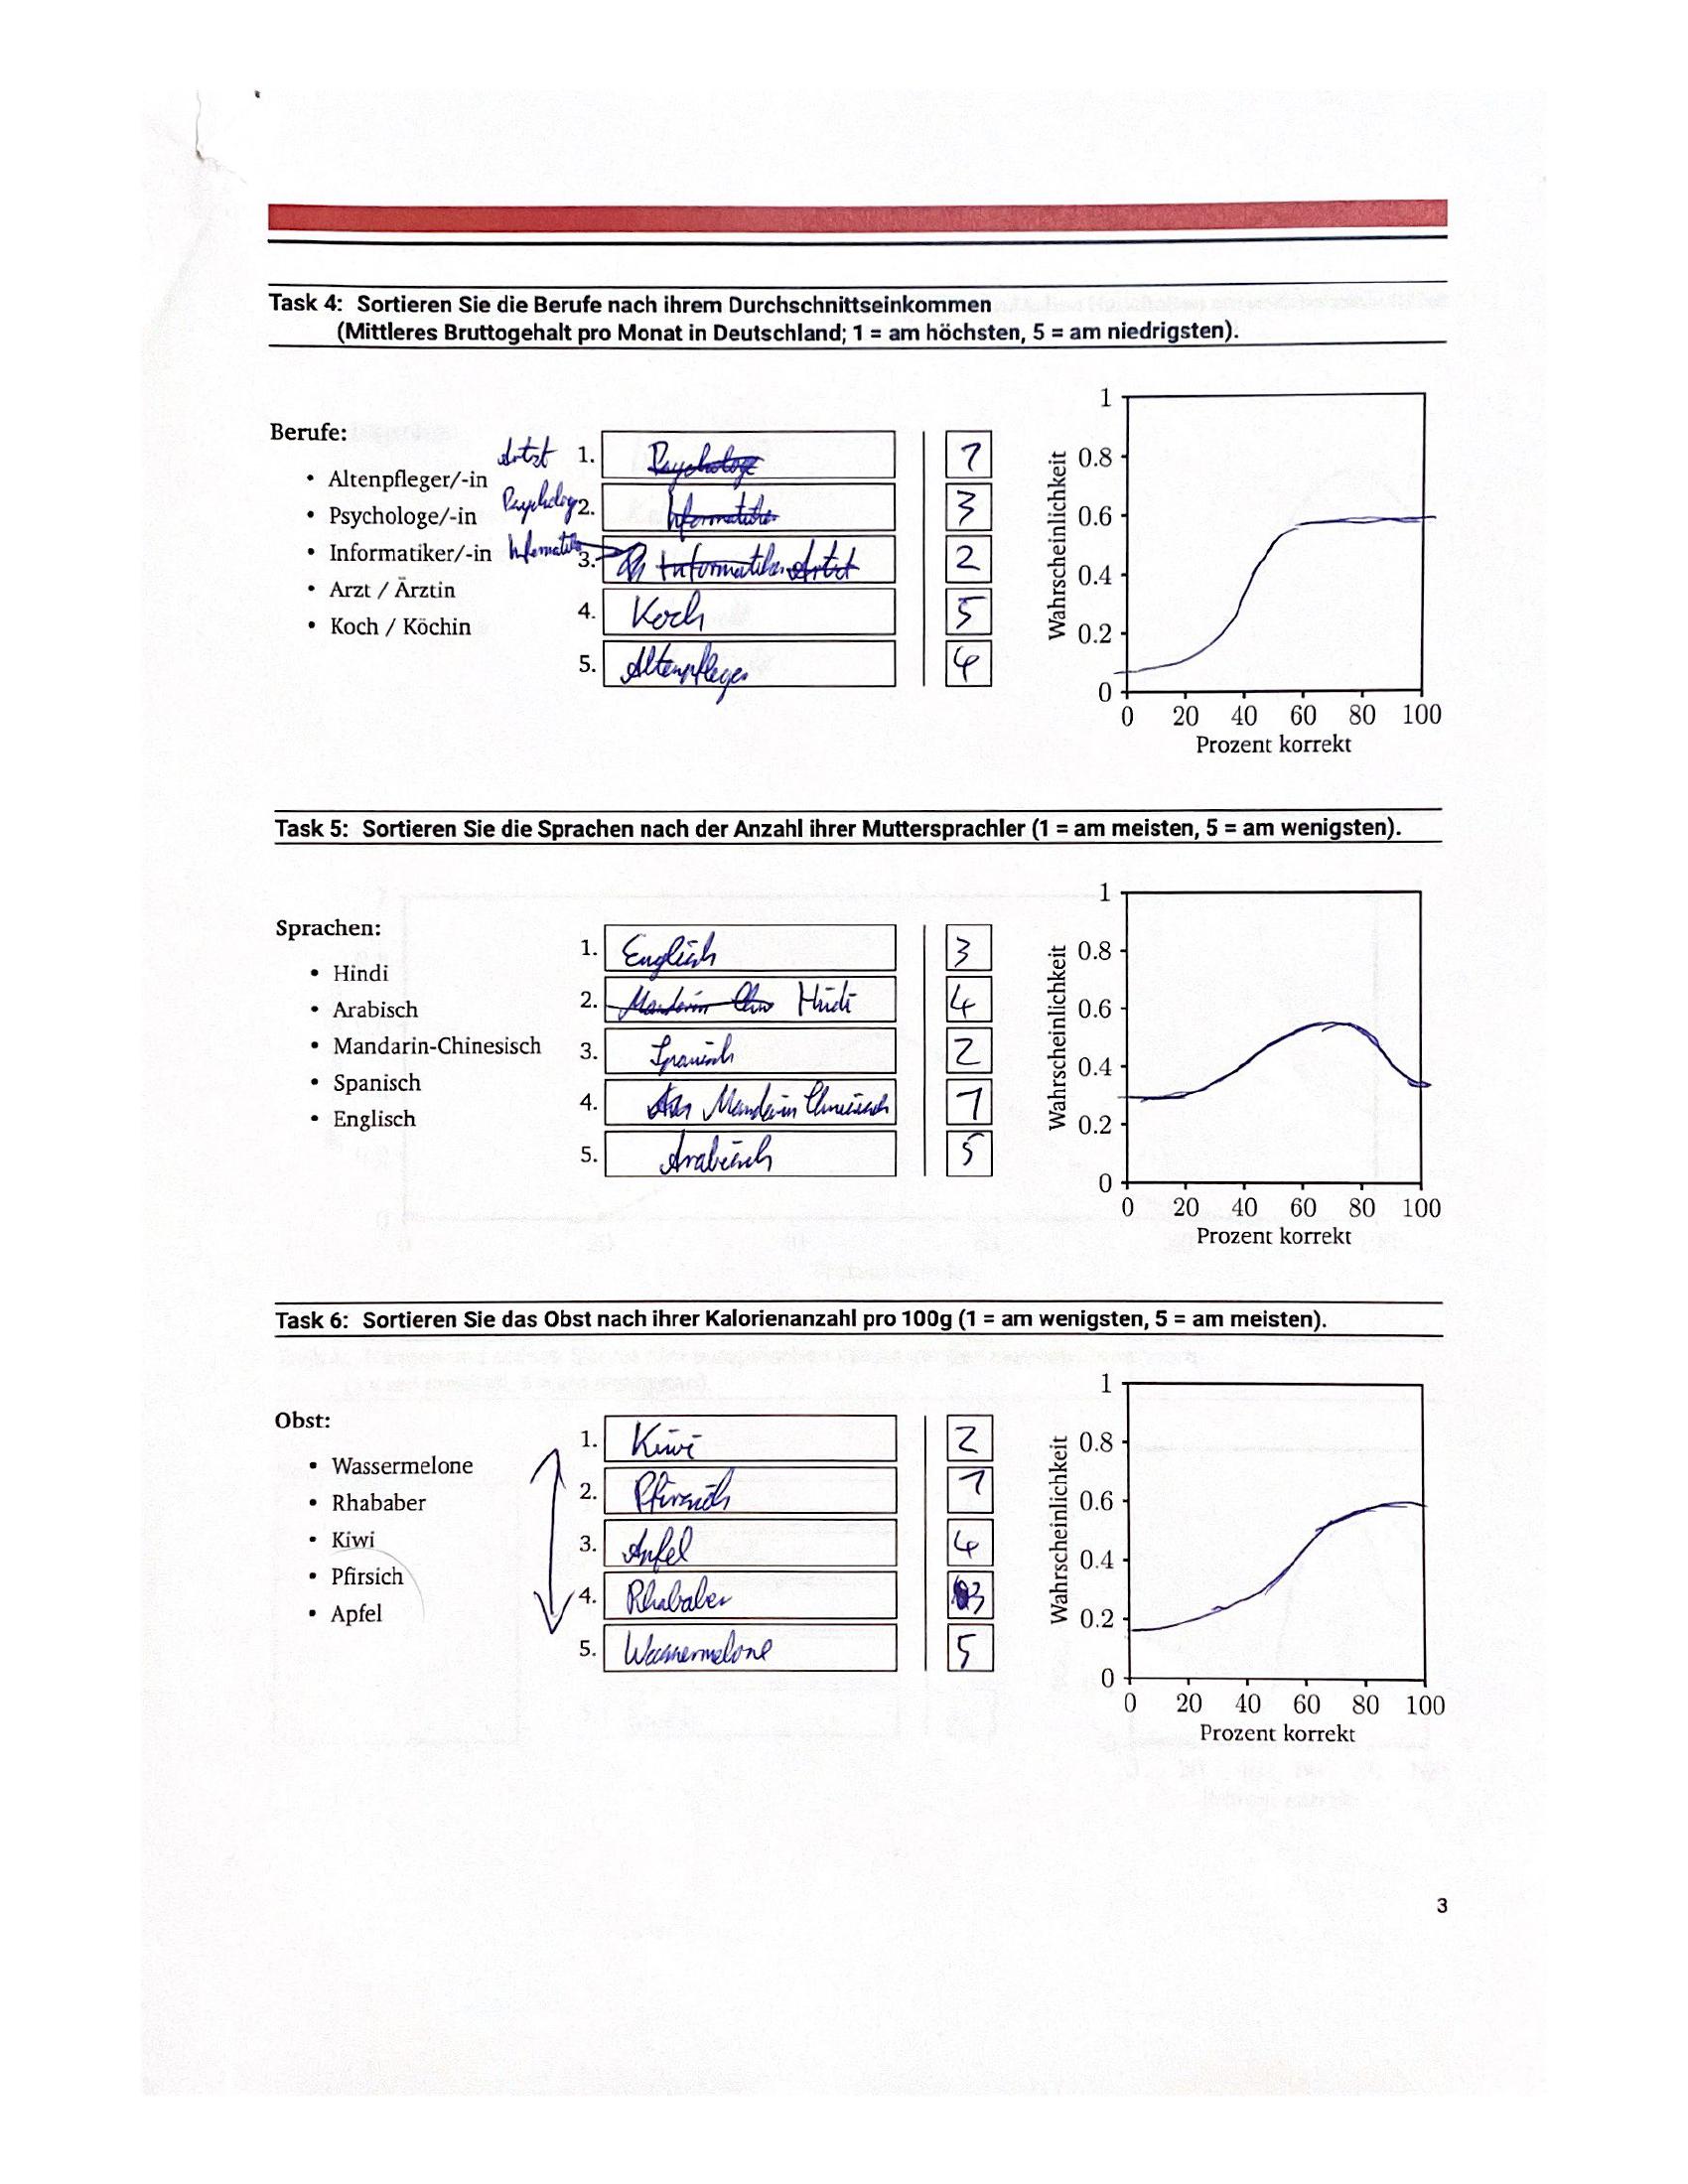 Task 4: Sortieren Sie die Berufe nach ihrem Durchschnittseinkommen
(Mittleres Bruttogehalt pro Monat in Deutschland; 1 = am höchsten, 5 = am niedrigsten).
Berufe:
• Altenpfleger/-in
• Psychologe/-in
• Informatiker/-in
• Arzt / Ärztin
• Koch / Köchin
Artzt 1. Psychologe 1
Psychologe 2. Informatiker 3
Informatiker 3. Informatiker Artzt 2
4. Koch 5
5. Altenpfleger 4
Wahrscheinlichkeit
1
0.8
0.6
0.4
0.2
0
0 20 40 60 80 100
Prozent korrekt
Task 5: Sortieren Sie die Sprachen nach der Anzahl ihrer Muttersprachler (1 = am meisten, 5 = am wenigsten).
Sprachen:
• Hindi
• Arabisch
• Mandarin-Chinesisch
• Spanisch
• Englisch
1. Englisch 3
2. Mandarin Hindi 4
3. Spanisch 2
4. Mandarin Chinesisch 1
5. Arabisch 5
Wahrscheinlichkeit
1
0.8
0.6
0.4
0.2
0
0 20 40 60 80 100
Prozent korrekt
Task 6: Sortieren Sie das Obst nach ihrer Kalorienanzahl pro 100g (1 = am wenigsten, 5 = am meisten).
Obst:
• Wassermelone
• Rhababer
• Kiwi
• Pfirsich
• Apfel
1. Kiwi 2
2. Pfirsich 1
3. Apfel 4
4. Rhababer 3
5. Wassermelone 5
Wahrscheinlichkeit
1
0.8
0.6
0.4
0.2
0
0 20 40 60 80 100
Prozent korrekt
3